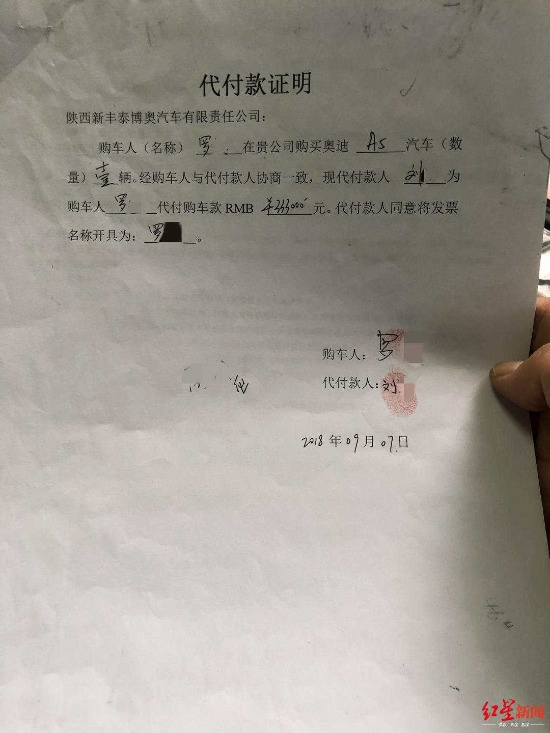 代付款证明
陕西新丰泰博奥汽车有限责任公司：
购车人（名称）罗 在贵公司购买奥迪 A5 汽车（数
量）壹辆。经购车人与代付款人协商一致，现代付款人 刘 为
购车人 罗 代付购车款 RMB ￥333000 元。代付款人同意将发票
名称开具为：罗 。
购车人：罗
代付款人：刘
2018 年 09 月 07 日
红星新闻